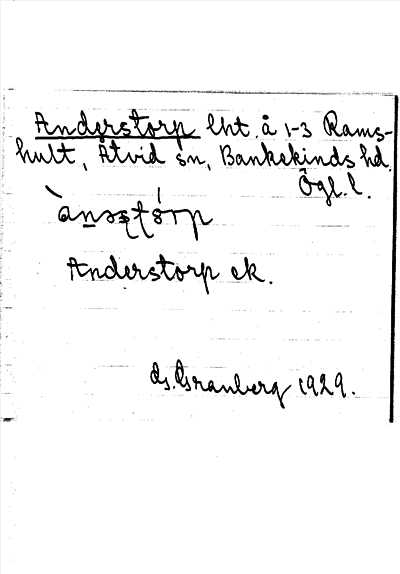 Anderstorp lht. å 1-3 Rams-
hult, Åtvid sn, Bankekinds hd.
Ögl. l.
Anderstorp ek.
Granberg 1929.